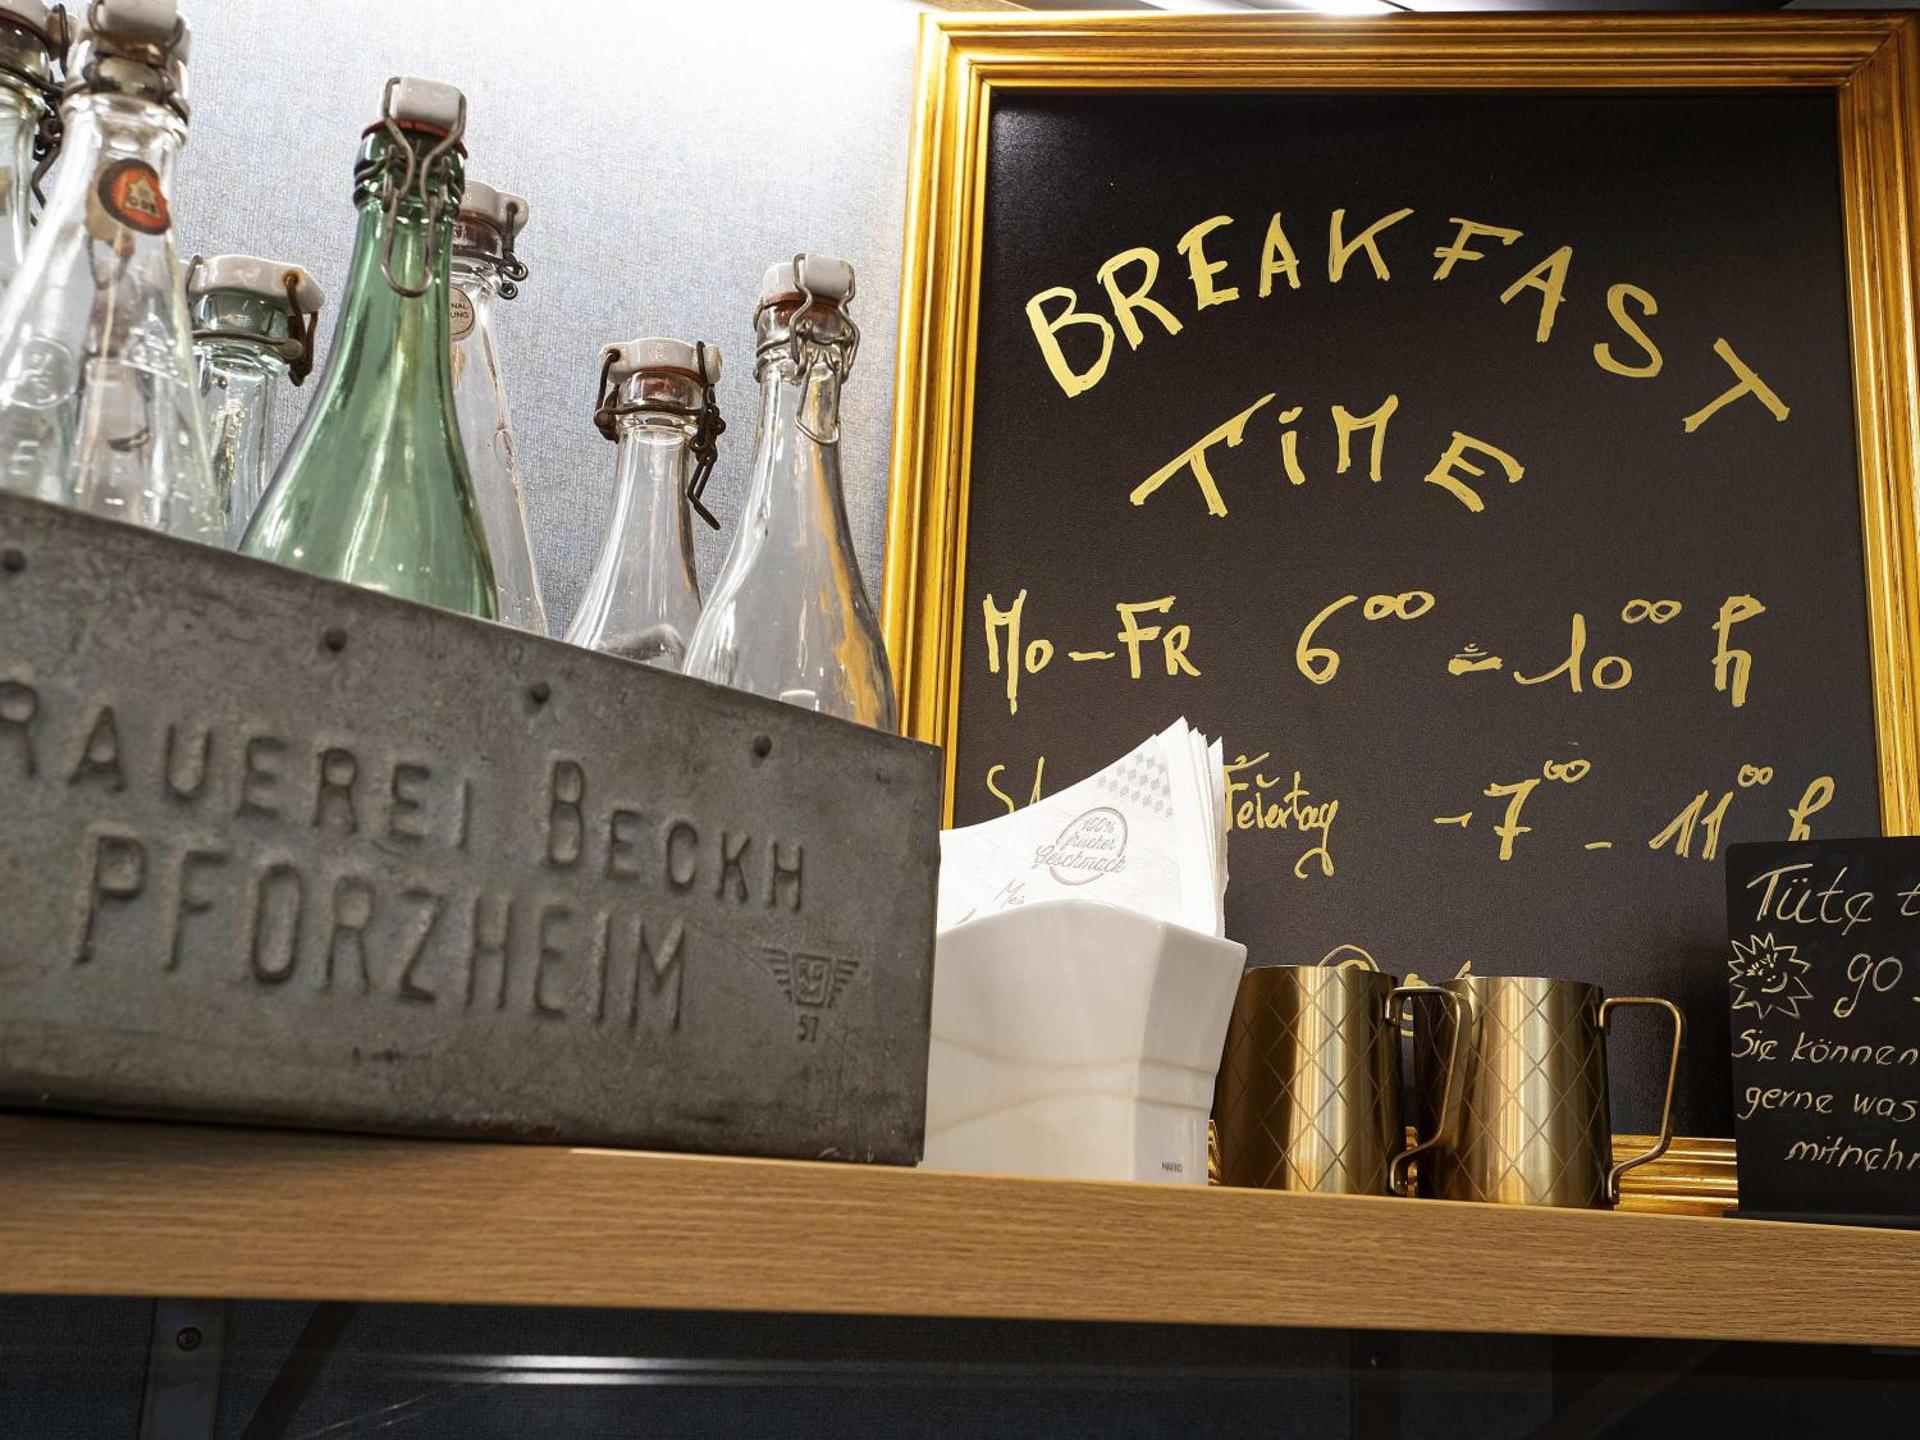 BREAKFAST
TiME
Mo-FR 6⁰⁰ - 10⁰⁰ h
Feiertag - 7⁰⁰ - 11⁰⁰ h
RAUEREI BECKH
PFORZHEIM
57
100%
frischer
Geschmack
Tüte t
go
Sie können
gerne was
mitnehm